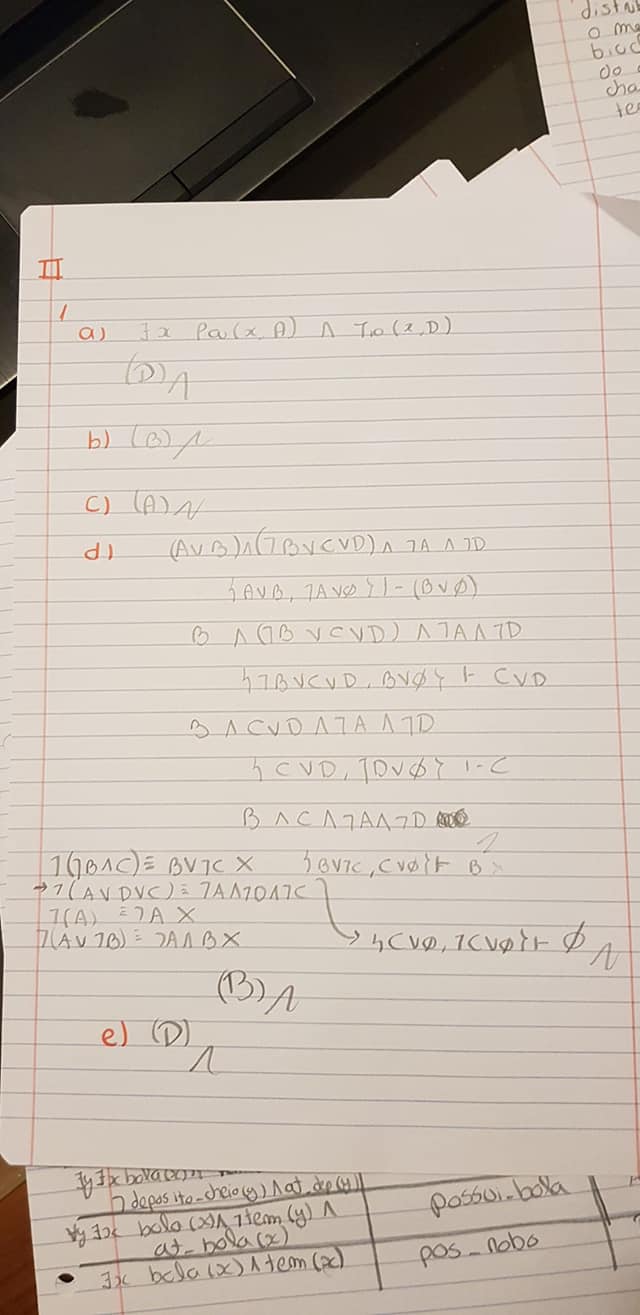 distri
o me
bicic
do
cha
te
II
1
a) ∃x Pa(x,A) ∧ To(x,D)
(D)
b) (B)
c) (A)
d) (A∨B)∧(¬B∨C∨D)∧¬A∧¬D
{A∨B, ¬A∨∅} ⊢ (B∨∅)
B ∧(¬B∨C∨D)∧¬A∧¬D
{¬B∨C∨D, B∨∅} ⊢ C∨D
B∧C∨D∧¬A∧¬D
{C∨D, ¬D∨∅} ⊢ C
B∧C∧¬A∧¬D
¬(¬B∧C)≡B∨¬C X {B∨¬C, C∨∅}⊢ B
→¬(A∨D∨C)≡¬A∧¬D∧¬C
¬(A) ≡¬A X
¬(A∨¬B)≡¬A∧B X → {C∨∅, ¬C∨∅}⊢ ∅
(B)
e) (D)
∃y ∃x bola(x)∧
¬deposito_cheio(y)∧at_dep(y)
possui_bola
∀y ∃x bola(x)∧¬tem(y)∧
at_bola(x)
∃x bola(x)∧tem(x)
pos_nobo